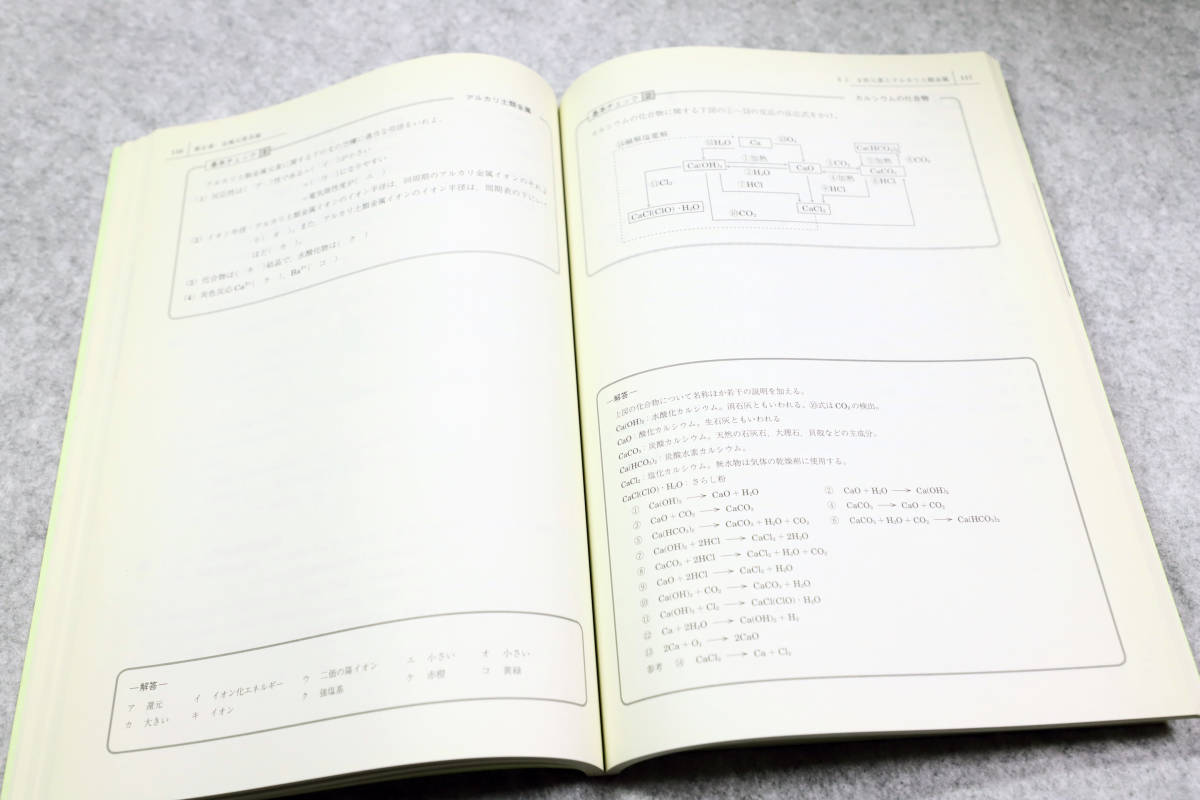 アルカリ土類金属
基本チェック
アルカリ土類金属元素に関する下の文の空欄に適当な用語をいれよ。
(2) イオン半径:アルカリ土類金属イオンのイオン半径は、同周期のアルカリ金属イオンのそれよ
り( オ )。また、アルカリ土類金属イオンのイオン半径は、周期表の下にいく
ほど( カ )。
(3) 化合物は( キ )結晶で、水酸化物は( ク )
(4) 炎色反応 Ca²⁺( ケ )、Ba²⁺( コ )
―解答―
ア 還元 イ イオン化エネルギー ウ 二価の陽イオン エ 小さい オ 小さい
カ 大きい キ イオン ク 強塩基 ケ 赤橙 コ 黄緑
117
基本チェック 2 カルシウムの化合物
カルシウムの化合物に関する下図の①〜⑬の反応の反応式をかけ。
⑭融解塩電解
⑫H₂O Ca ⑬O₂ Ca(HCO₃)₂
Ca(OH)₂ ①加熱 CaO ③CO₂ ⑤加熱 CaCO₃ ⑥CO₂
②H₂O ④加熱
⑪Cl₂ ⑦HCl ⑨HCl ⑧HCl
CaCl(ClO)・H₂O CaCl₂
⑩CO₂
―解答―
上図の化合物について名称ほか若干の説明を加える。
Ca(OH)₂:水酸化カルシウム。消石灰ともいわれる。⑩式はCO₂の検出。
CaO:酸化カルシウム。生石灰ともいわれる
CaCO₃:炭酸カルシウム。天然の石灰石、大理石、貝殻などの主成分。
Ca(HCO₃)₂:炭酸水素カルシウム。
CaCl₂:塩化カルシウム。無水物は気体の乾燥剤に使用する。
CaCl(ClO)・H₂O:さらし粉
① Ca(OH)₂ ⟶ CaO+H₂O ② CaO+H₂O ⟶ Ca(OH)₂
③ CaO+CO₂ ⟶ CaCO₃ ④ CaCO₃ ⟶ CaO+CO₂
⑤ Ca(HCO₃)₂ ⟶ CaCO₃+H₂O+CO₂ ⑥ CaCO₃+H₂O+CO₂ ⟶ Ca(HCO₃)₂
⑦ Ca(OH)₂+2HCl ⟶ CaCl₂+2H₂O
⑧ CaCO₃+2HCl ⟶ CaCl₂+H₂O+CO₂
⑨ CaO+2HCl ⟶ CaCl₂+H₂O
⑩ Ca(OH)₂+CO₂ ⟶ CaCO₃+H₂O
⑪ Ca(OH)₂+Cl₂ ⟶ CaCl(ClO)・H₂O
⑫ Ca+2H₂O ⟶ Ca(OH)₂+H₂
⑬ 2Ca+O₂ ⟶ 2CaO
参考 ⑭ CaCl₂ ⟶ Ca+Cl₂